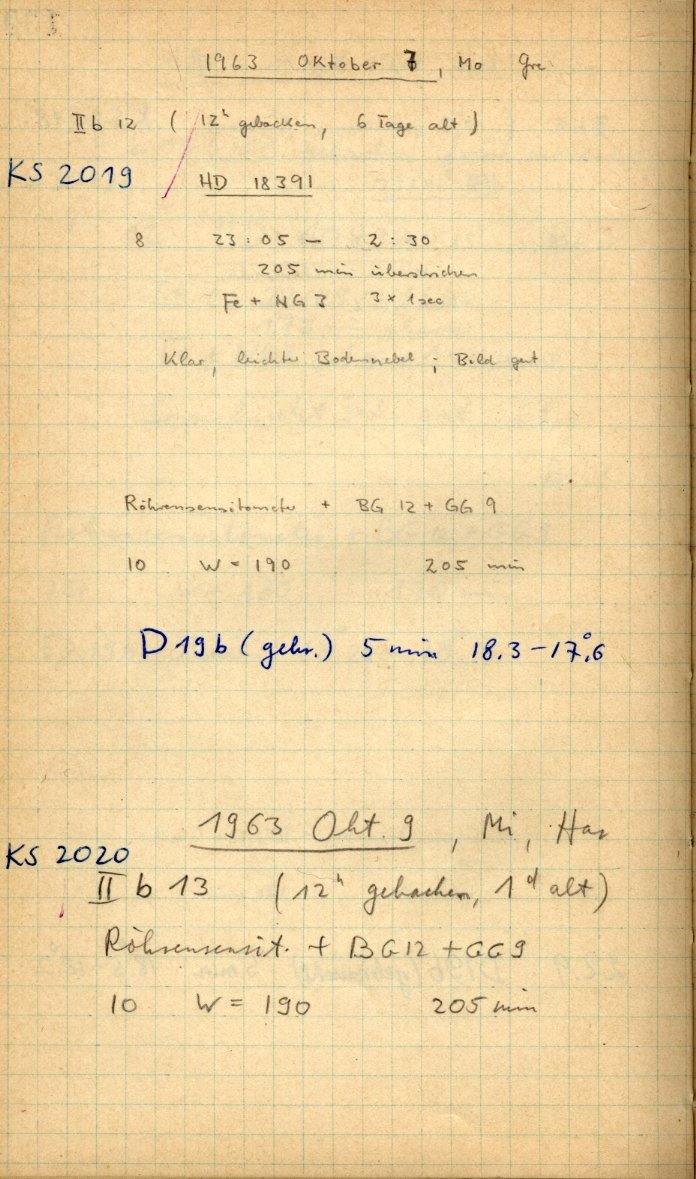 1963 Oktober 7, Mo Gre
II b 12 ( 12h gebacken, 6 Tage alt )
KS 2019
HD 18391
8 23:05 – 2:30
205 min überstrichen
Fe + NG 3 3 × 1sec
Klar, leichter Bodennebel ; Bild gut
Röhrensensitometer + BG 12 + GG 9
10 W = 190 205 min
D 19 b ( gebr. ) 5 min 18.3 – 17°.6
1963 Okt. 9 , Mi, Har
KS 2020
II b 13 ( 12h gebacken, 1d alt )
Röhrensensit. + BG12 + GG9
10 W = 190 205 min